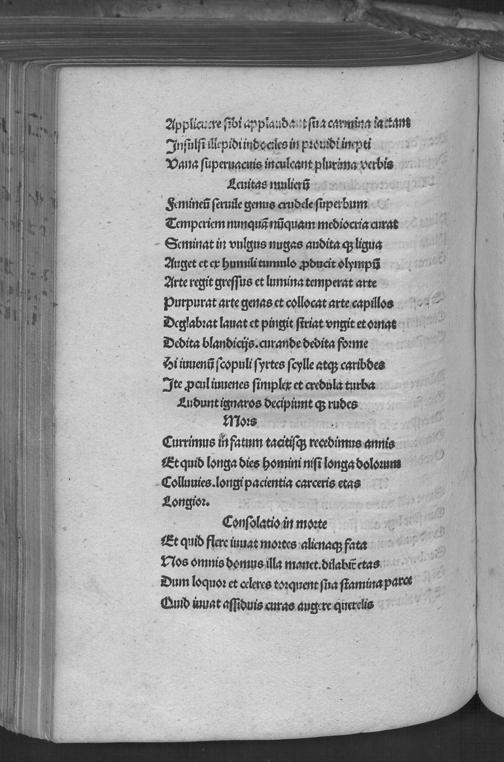 Applicuere sibi applaudant sua carmina iactant
Insulsi illepidi indociles in prouidi inepti
Vana superuacuis inculcant plurima verbis
Leuitas mulierū
Femineū seruile genus crudele superbum
Temperiem nunquā nūquam mediocria curat
Seminat in vulgus nugas audita qꝫ ligua
Auget et ex humili tumulo ꝓducit olympū
Arte regit gressus et lumina temperat arte
Purpurat arte genas et collocat arte capillos
Deglabrat lauat et pingit striat vngit et ornat
Dedita blandicijs. curande dedita forme
Hi iuuenū scopuli syrtes scylle atqꝫ caribdes
Ite ꝓcul iuuenes simplex et credula turba
Ludunt ignaros decipiunt qꝫ rudes
Mors
Currimus in fatum tacitisqꝫ recedimus annis
Et quid longa dies homini nisi longa dolorum
Colluuies. longi pacientia carceris etas
Longior.
Consolatio in morte
Et quid flere iuuat mortes alienaqꝫ fata
Nos omnis domus illa manet. dilabit̄ etas
Dum loquor et celeres torquent sua stamina parce
Quid iuuat assiduis curas augere querelis